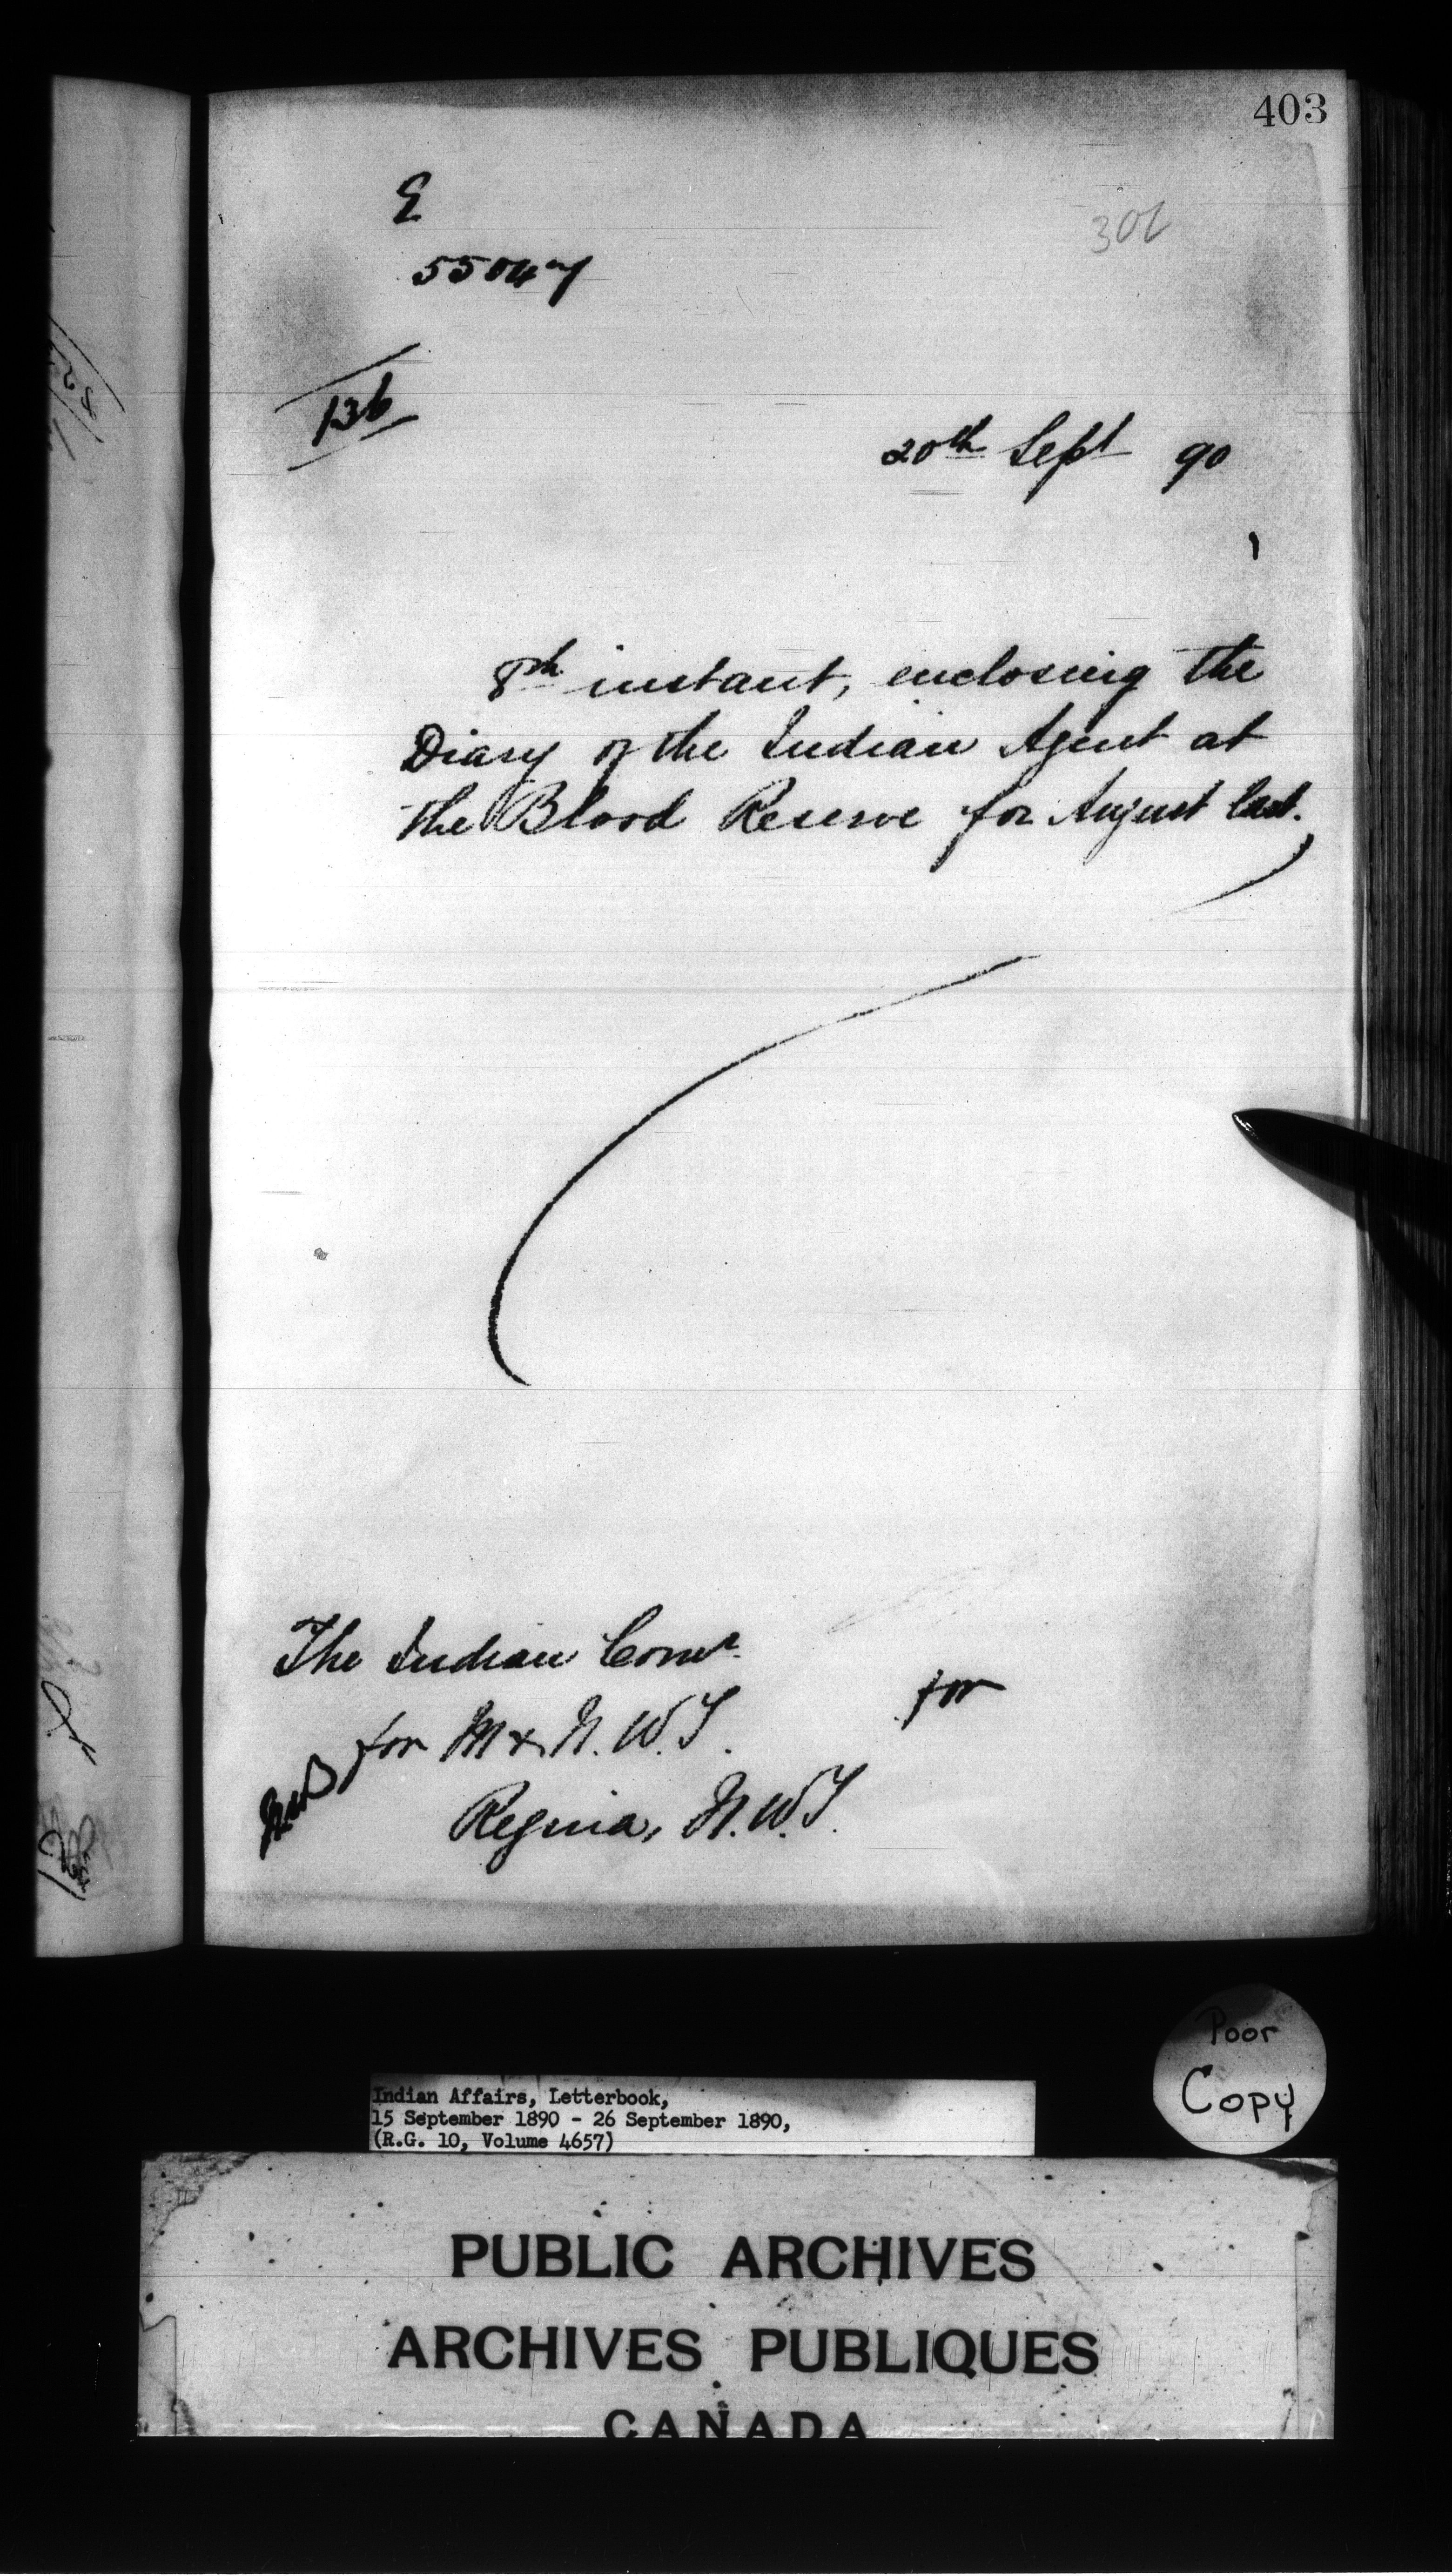 403
E
302
55047
136
20th Sept 90
8th instant, enclosing the
Diary of the Indian Agent at
the Blood Reserve for August last.
The Indian Comr
for M & N.W.T.
for
Regina, N.W.T.
Poor
Copy
Indian Affairs, Letterbook,
15 September 1890 - 26 September 1890,
(R.G. 10, Volume 4657)
PUBLIC ARCHIVES
ARCHIVES PUBLIQUES
CANADA